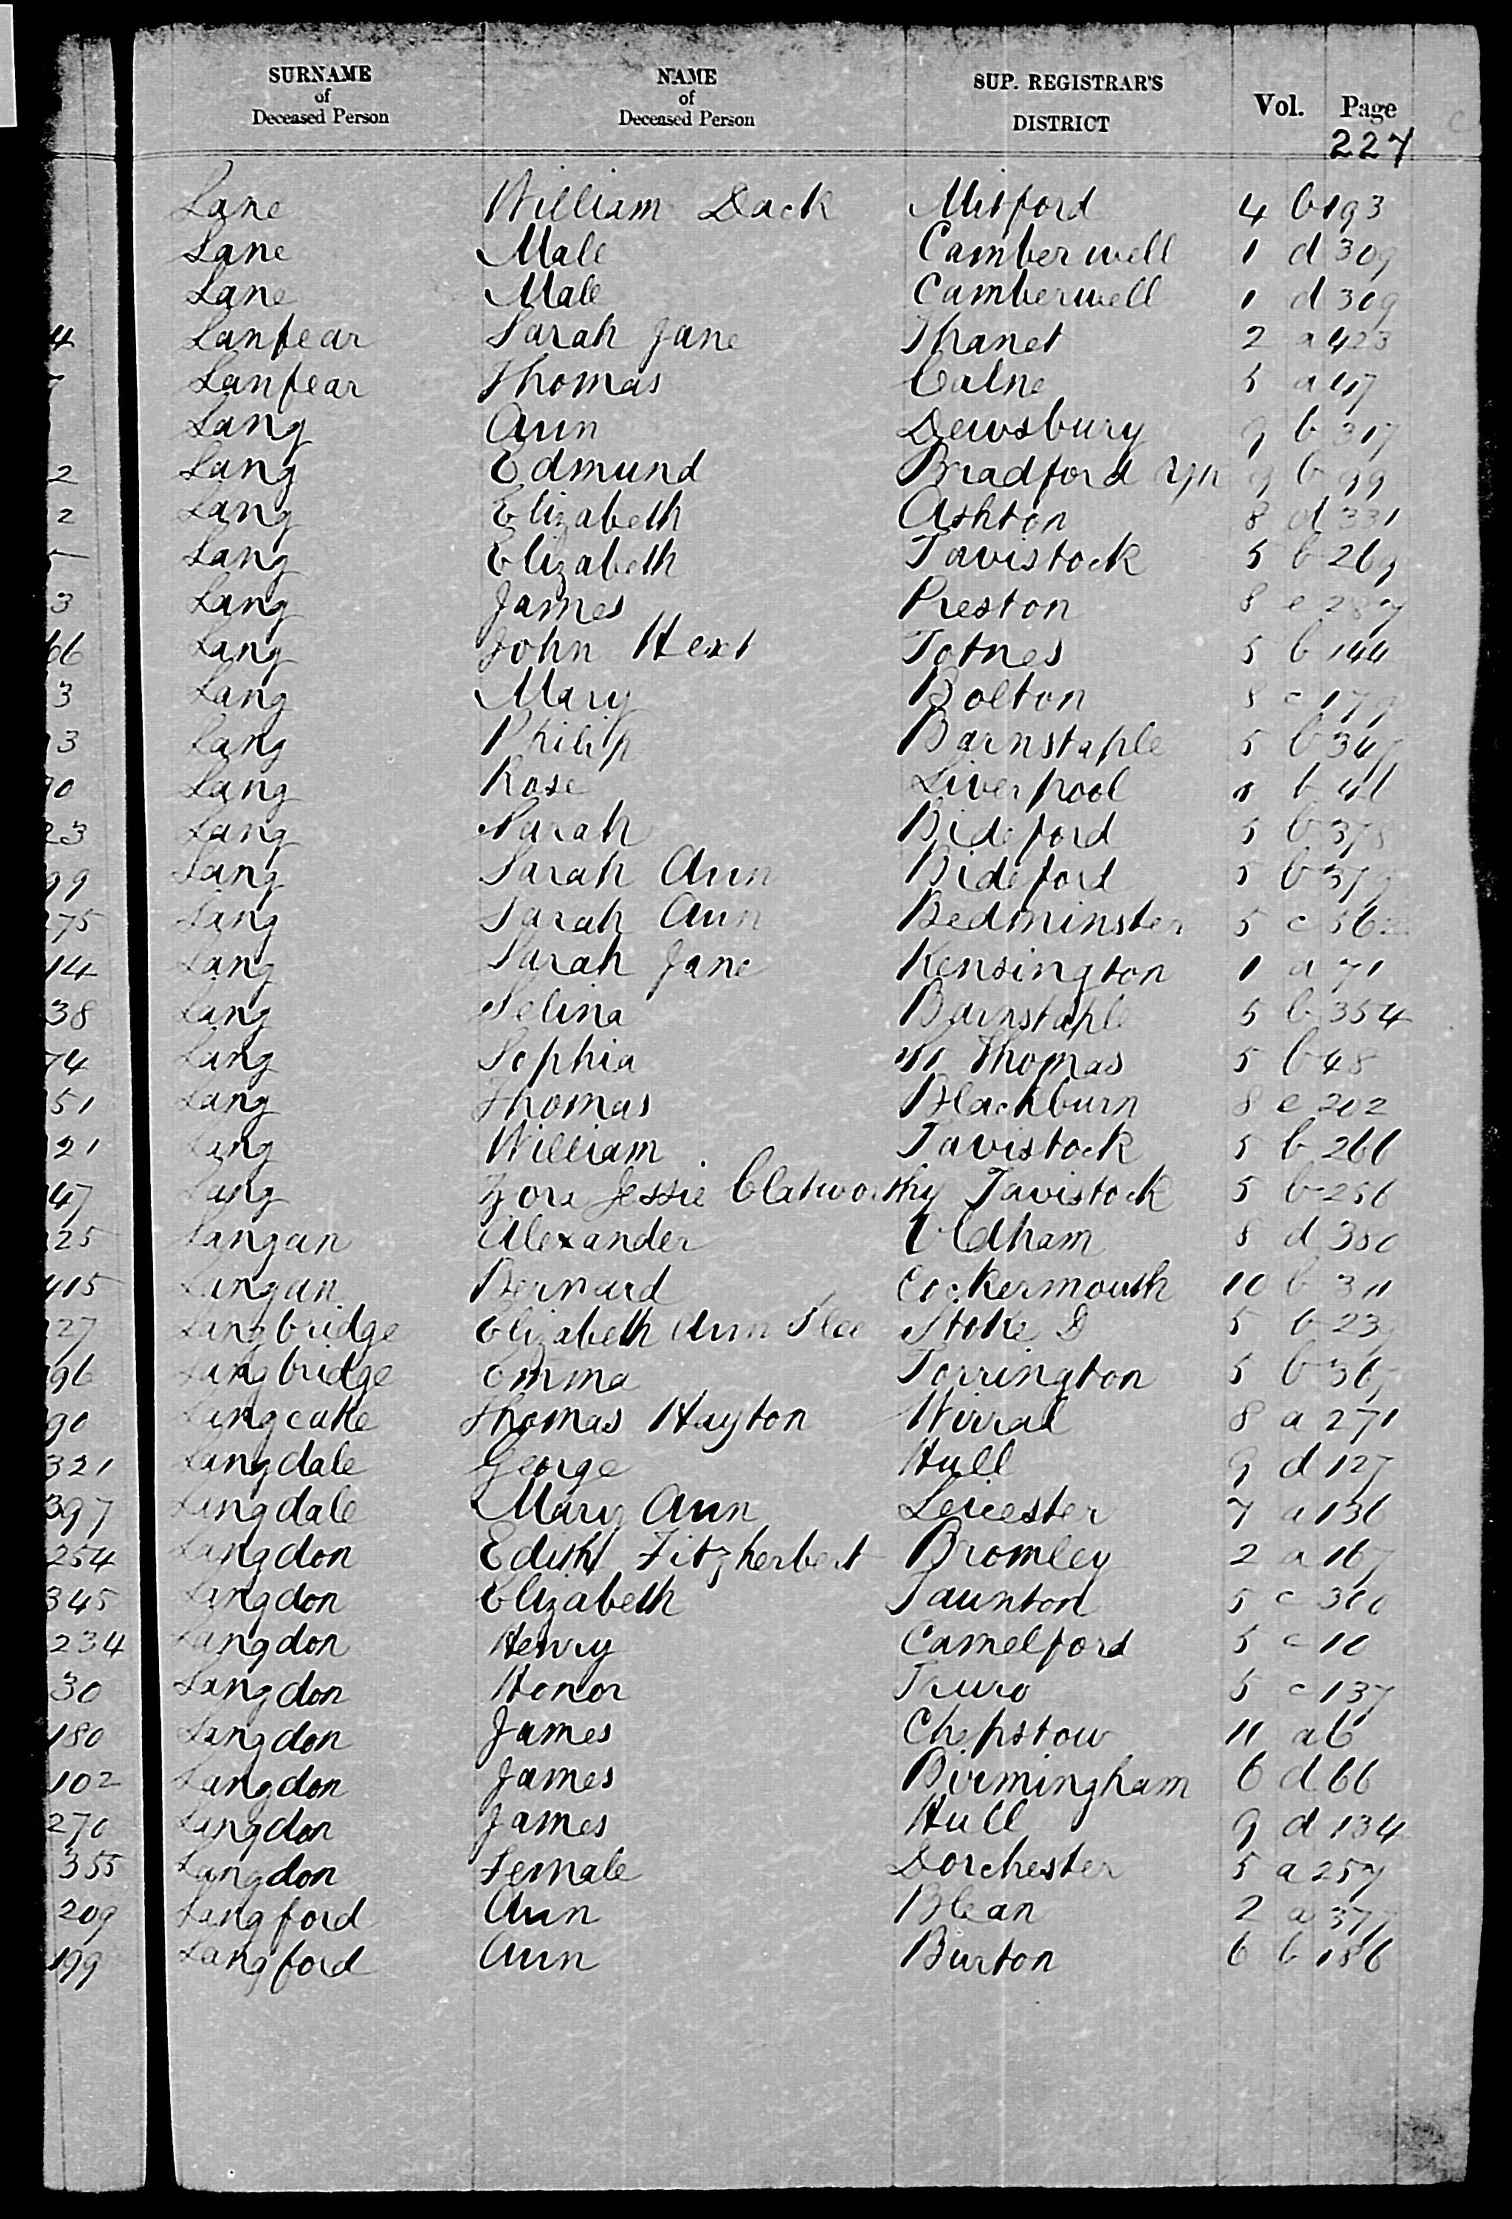 SURNAME of Deceased Person NAME of Deceased Person SUP. REGISTRAR'S DISTRICT Vol. Page
227
Lane William Dack Mitford 4 b 193
Lane Male Camberwell 1 d 309
Lane Male Camberwell 1 d 309
4 Lanfear Sarah Jane Thanet 2 a 423
7 Lanfear Thomas Calne 5 a 117
Lang Ann Dewsbury 9 b 317
2 Lang Edmund Bradford Yn 9 b 99
2 Lang Elizabeth Ashton 8 d 331
5 Lang Elizabeth Tavistock 5 b 269
3 Lang James Preston 8 e 287
66 Lang John Hext Totnes 5 b 144
3 Lang Mary Bolton 8 c 179
3 Lang Philip Barnstaple 5 b
90 Lang Rose Liverpool b
23 Lang Sarah Bideford 5 b 378
99 Lang Sarah Ann Bideford 5 b 379
275 Lang Sarah Ann Bedminster 5 c
14 Lang Sarah Jane Kensington 1 a 71
38 Lang Selina Barnstaple 5 b 354
74 Lang Sophia St Thomas 5 b 48
51 Lang Thomas Blackburn 8 e 202
21 Lang William Tavistock 5 b 266
47 Lang Zora Jessie Clatworthy Tavistock 5 b 256
25 Langan Alexander Oldham 8 d
415 Langan Bernard Cockermouth 10 b 311
27 Langbridge Elizabeth Ann Slee Stoke D 5 b
96 Langbridge Emma Torrington 5 b
90 Langcake Thomas Hayton Wirral 8 a 271
321 Langdale George Hull 9 d 127
397 Langdale Mary Ann Leicester 7 a 136
254 Langdon Edith Fitzherbert Bromley 2 a 167
345 Langdon Elizabeth Taunton 5 c
234 Langdon Henry Camelford 5 c 10
30 Langdon Honor Truro 5 c 137
180 Langdon James Chepstow 11 a 6
102 Langdon James Birmingham 6 d 66
270 Langdon James Hull 9 d 134
355 Langdon Female Dorchester 5 a 257
209 Langford Ann Blean 2 a 377
199 Langford Ann Burton 6 b 186